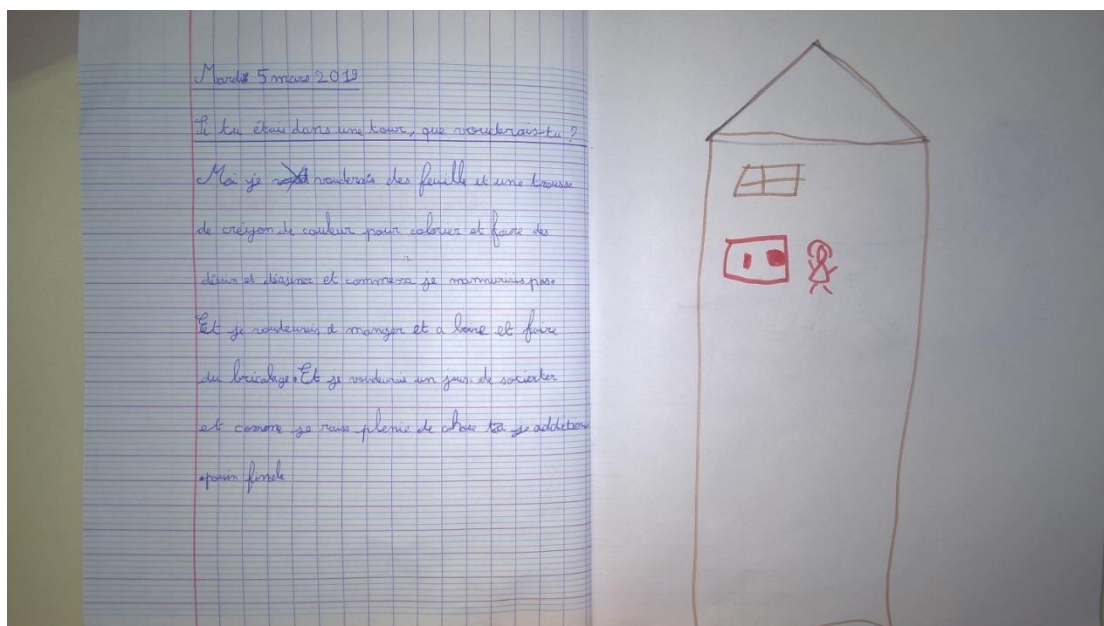 Mardi 5 mars 2019
Si tu étais dans une tour, que vouderais-tu ?
Moi je vouderais des feuille et une trousse
de créyon de couleur pour colorier et faire des
désin et déssiner et comme sa je mamuriais pas.
Et je vouderais à manger et a boire et faire
du bricolage. Et je vouderais un jeux de socierter
et comme je plenie de chose